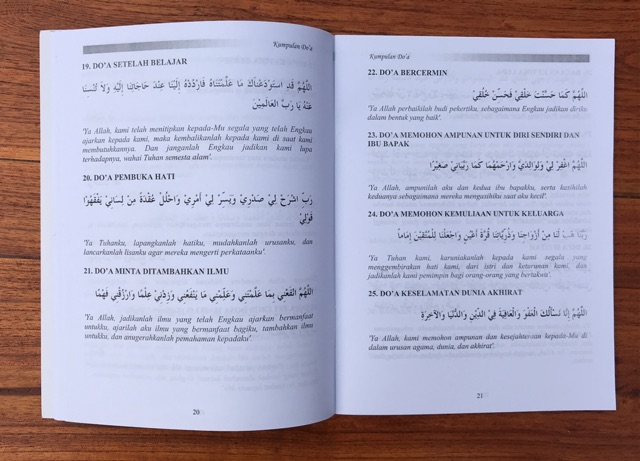 Kumpulan Do'a
19. DO'A SETELAH BELAJAR
اللَّهُمَّ قَدِ اسْتَوْدَعْنَاكَ مَا عَلَّمْتَنَاهُ فَارْدُدْهُ إِلَيْنَا عِنْدَ حَاجَاتِنَا إِلَيْهِ وَلاَ تَنْسَنَا
عَنْهُ يَا رَبَّ الْعَالَمِيْنَ
'Ya Allah, kami telah menitipkan kepada-Mu segala yang telah Engkau
ajarkan kepada kami, maka kembalikanlah kepada kami di saat kami
membutuhkannya. Dan janganlah Engkau jadikan kami lupa
terhadapnya, wahai Tuhan semesta alam'.
20. DO'A PEMBUKA HATI
رَبِّ اشْرَحْ لِيْ صَدْرِيْ وَيَسِّرْ لِيْ أَمْرِيْ وَاحْلُلْ عُقْدَةً مِنْ لِسَانِيْ يَفْقَهُوْا
قَوْلِيْ
'Ya Tuhanku, lapangkanlah hatiku, mudahkanlah urusanku, dan
lancarkanlah lisanku agar mereka mengerti perkataanku'.
21. DO'A MINTA DITAMBAHKAN ILMU
اللَّهُمَّ انْفَعْنِي بِمَا عَلَّمْتَنِي وَعَلِّمْنِي مَا يَنْفَعُنِي وَزِدْنِيْ عِلْمًا وَارْزُقْنِي فَهْمًا
'Ya Allah, jadikanlah ilmu yang telah Engkau ajarkan bermanfaat
untukku, ajarilah aku ilmu yang bermanfaat bagiku, tambahkan ilmu
untukku, dan anugerahkanlah pemahaman kepadaku'.
20
Kumpulan Do'a
22. DO'A BERCERMIN
اللَّهُمَّ كَمَا حَسَّنْتَ خَلْقِيْ فَحَسِّنْ خُلُقِيْ
'Ya Allah perbaikilah budi pekertiku, sebagaimana Engkau jadikan diriku
dalam bentuk yang baik'.
23. DO'A MEMOHON AMPUNAN UNTUK DIRI SENDIRI DAN
IBU BAPAK
اللَّهُمَّ اغْفِرْ لِيْ وَلِوَالِدَيَّ وَارْحَمْهُمَا كَمَا رَبَّيَانِيْ صَغِيْرًا
'Ya Allah, ampunilah aku dan kedua ibu bapakku, serta kasihilah
keduanya sebagaimana mereka mengasihiku saat aku kecil'.
24. DO'A MEMOHON KEMULIAAN UNTUK KELUARGA
رَبَّنَا هَبْ لَنَا مِنْ أَزْوَاجِنَا وَذُرِّيَّاتِنَا قُرَّةَ أَعْيُنٍ وَاجْعَلْنَا لِلْمُتَّقِيْنَ إِمَامًا
'Ya Tuhan kami, karuniakanlah kepada kami segala yang
menggembirakan hati kami, dari istri dan keturunan kami, dan
jadikanlah kami pemimpin bagi orang-orang yang bertakwa'.
25. DO'A KESELAMATAN DUNIA AKHIRAT
اللَّهُمَّ إِنَّا نَسْأَلُكَ الْعَفْوَ وَالْعَافِيَةَ فِيْ الدِّيْنِ وَالدُّنْيَا وَالآخِرَةِ
'Ya Allah, kami memohon ampunan dan kesejahteraan kepada-Mu di
dalam urusan agama, dunia, dan akhirat'.
21